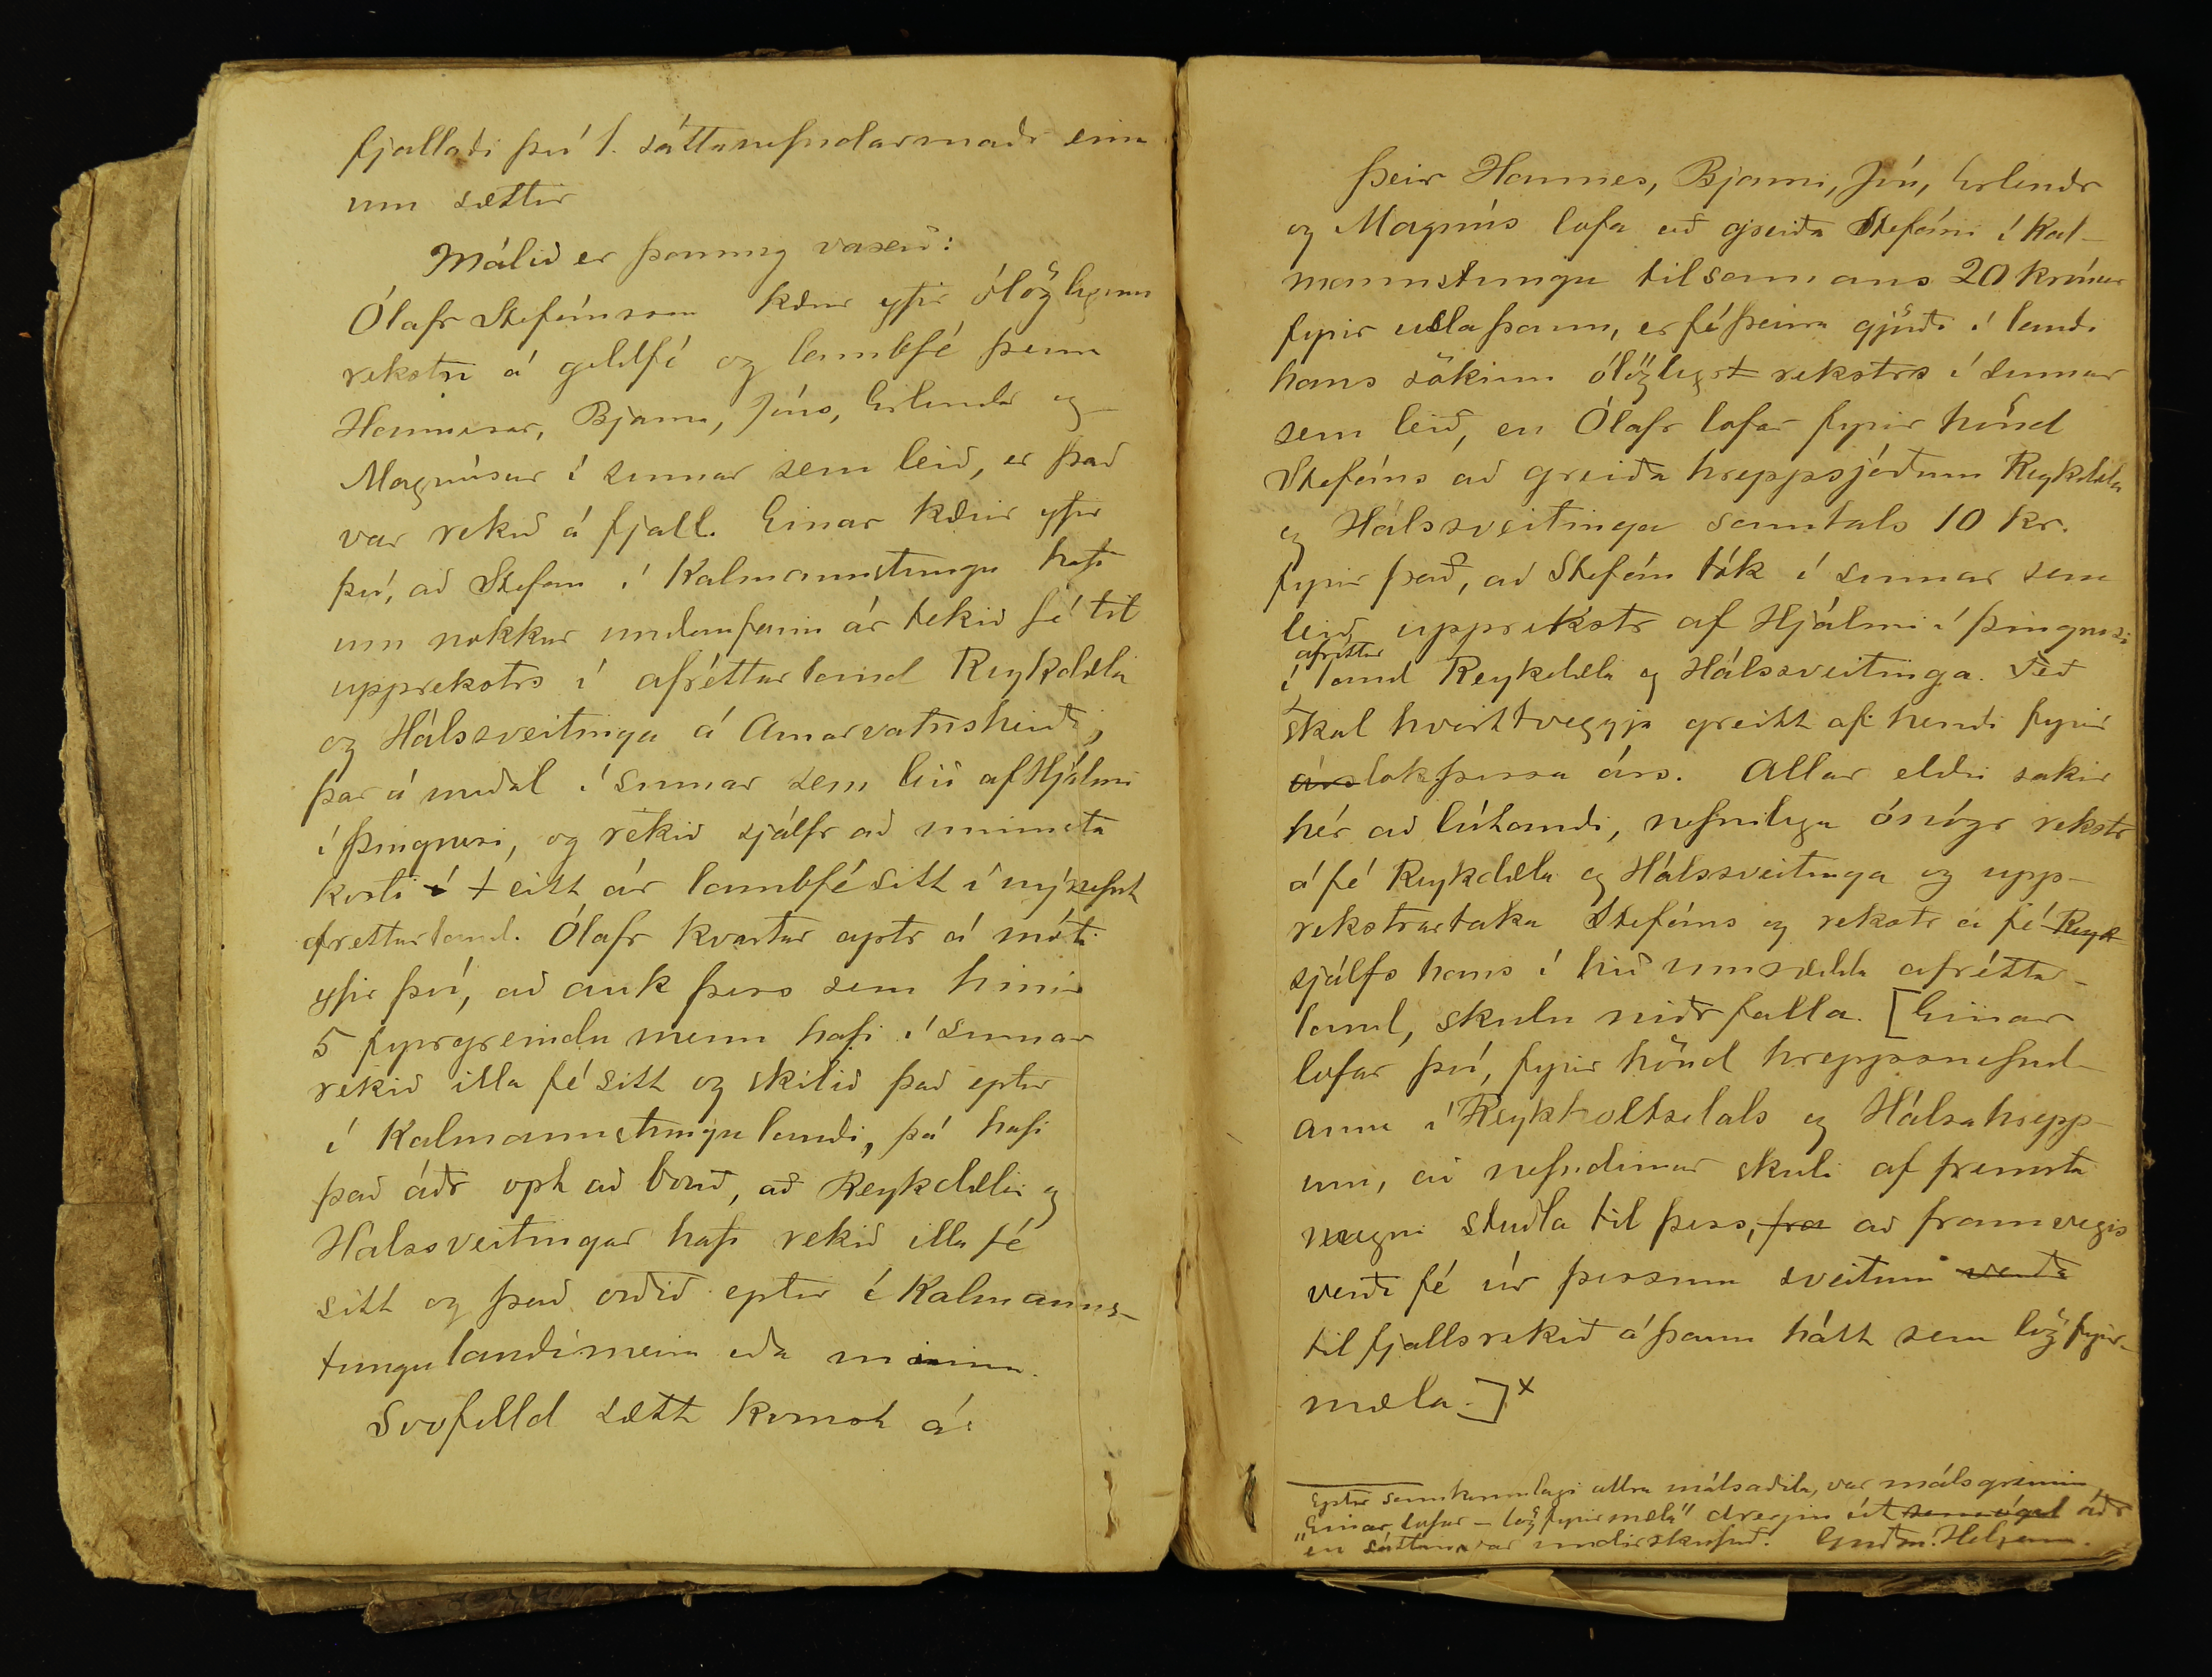 fjallaði því 1. sáttanefndarmaðr einn
um sættir
Málið er þannig vaxið:
Ólafr Stefánsson kærir yfir ólöglegum
rekstri á geldfé og lambfé þeirra
Hannesar, Bjarna, Jóns, Erlendar og
Magnúsar í sumar sem leið, er það
var rekið á fjall. Einar kærir yfir
því, að Stefán í Kalmannstungu hafi
um nokkur undanfarin ár tekið fé til
upprekstrs í afréttarland Reykdæla
og Hálssveitinga á Arnarvatnsheiði,
þar á meðal í sumar sem leið af Hjálmi
í Þingnesi, og rekið sjálfr að minnsta
kosti eitt ár lambfé sitt í nýnefnt
afréttarland. Ólafr kvartar aptr á móti
yfir því, að auk þess sem hinir
5 fyrgreindu menn hafi í sumar
rekið illa fé sitt og skilið það eptir
í Kalmannstungulandi, þá hafi
það áðr opt að borið, að Reykdælir og
Hálssveitingar hafi rekið illa fé
sitt og það orðið eptir í Kalmanns-
tungulandi meira eða minna.
Svofelld sætt komst á:
Þeir Hannes, Bjarni, Jón, Erlendr
og Magnús lofa að greiða Stefáni í Kal-
mannstungu til samans 20 krónur
fyrir usla þann, er fé þeirra gjörði í landi
hans sökum ólöglegs rekstrs í sumar
sem leið, en Ólafr lofar fyrir hönd
Stefáns að greiða hreppsjóðum Reykdæla
og Hálssveitinga samtals 10 kr.
fyrir það, að Stefán tók í sumar sem
leið upprekstr af Hjálmi í Þingnesi
í afréttarland Reykdæla og Hálssveitinga. Féð
skal hvorttveggja greitt af hendi fyrir
árs lok þessa árs. Allar eldri sakir
hér að lútandi, nefnilega ónógr rekstr
á fé Reykdæla og Hálssveitinga og upp-
rekstrartaka Stefáns og rekstr á fé Reyk
sjálfs hans í hið umrædda afréttar-
land, skulu niðr falla. [Einar
lofar því, fyrir hönd hreppsnefnd-
anna í Reykholtsdals og Hálsahrepp-
um, að nefndirnar skuli af fremsta
megni stuðla til þess, fra að framvegis
verði fé úr þessum sveitum verði
til fjalls rekið á þann hátt sem lög fyrir-
mæla.]x
Eptir samkomulagi allra málsaðila, var málsgreinin
"Einar lofar – lög fyrirmæla" dregin út áðr
en sáttin var undirskrifuð. Guðm. Helgason.